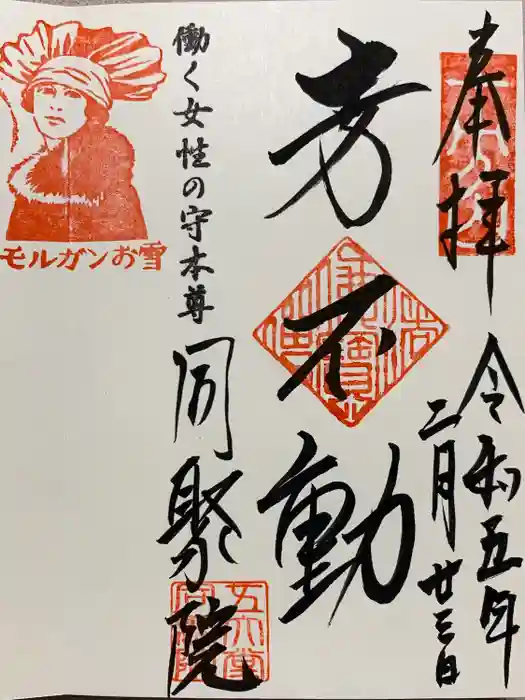 奉拝
令和五年
二月廿三日
芳不動
働く女性の守本尊
同聚院
五大堂
同聚院
モルガンお雪